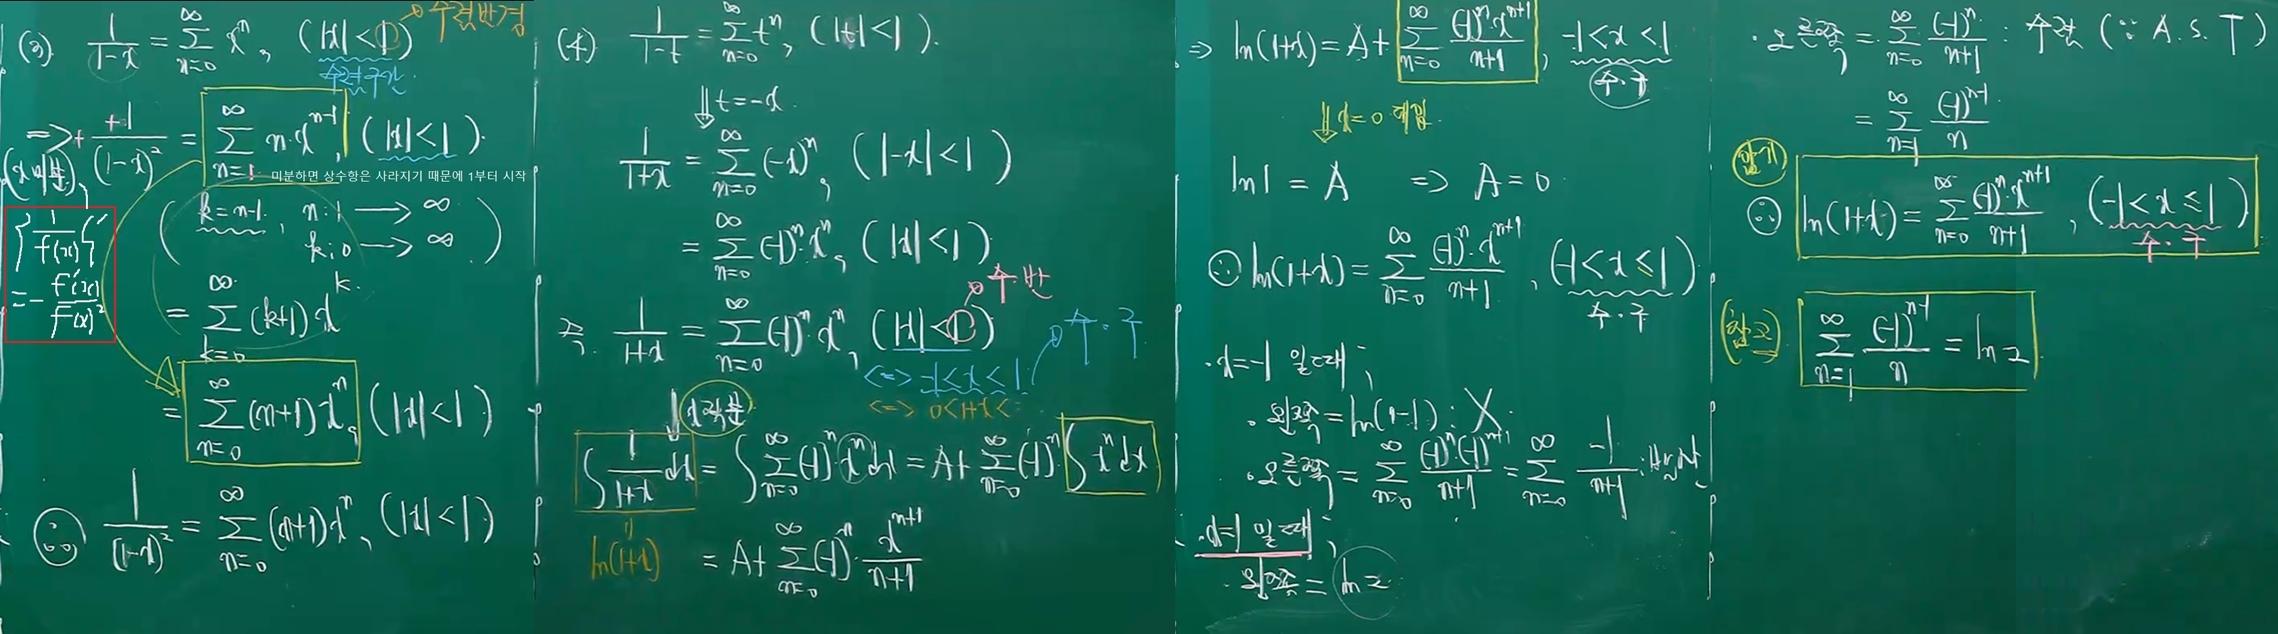 (3) 1/(1-x) = ∑_{n=0}^{∞} x^n, (|x|<1) → 수렴반경
수렴구간
=> + +1/(1-x)^2 = ∑_{n=1}^{∞} n·x^{n-1}, (|x|<1).
(x 미분)
미분하면 상수항은 사라지기 때문에 1부터 시작
{1/f(x)}'
= - f'(x)/f(x)^2
( k=n-1, n:1 → ∞
k:0 → ∞ )
= ∑_{k=0}^{∞} (k+1) x^k.
= ∑_{n=0}^{∞} (n+1) x^n, (|x|<1)
∴ 1/(1-x)^2 = ∑_{n=0}^{∞} (n+1) x^n, (|x|<1)
(4) 1/(1-t) = ∑_{n=0}^{∞} t^n, (|t|<1).
⇓ t=-x.
1/(1+x) = ∑_{n=0}^{∞} (-x)^n, (|-x|<1)
= ∑_{n=0}^{∞} (-1)^n·x^n, (|x|<1)
즉, 1/(1+x) = ∑_{n=0}^{∞} (-1)^n·x^n, (|x|<1) → 수·반
<=> -1<x<1 → 수·구
<=> 0<1+x<
↓ x 적분
∫ 1/(1+x) dx = ∫ ∑_{n=0}^{∞} (-1)^n x^n dx = A + ∑_{n=0}^{∞} (-1)^n ∫ x^n dx
ln(1+x) = A + ∑_{n=0}^{∞} (-1)^n · x^{n+1}/(n+1)
=> ln(1+x) = A + ∑_{n=0}^{∞} (-1)^n·x^{n+1}/(n+1), -1<x<1
수·구
⇓ x=0 대입.
ln1 = A => A=0.
∴ ln(1+x) = ∑_{n=0}^{∞} (-1)^n·x^{n+1}/(n+1), (-1<x≤1)
수·구
·x=-1 일 때,
·왼쪽 = ln(1-1) : X.
·오른쪽 = ∑_{n=0}^{∞} (-1)^n(-1)^{n+1}/(n+1) = ∑_{n=0}^{∞} -1/(n+1) : 발산
·x=1 일 때,
·왼쪽 = ln2
·오른쪽 = ∑_{n=0}^{∞} (-1)^n/(n+1) : 수렴 (∵ A.S.T)
= ∑_{n=1}^{∞} (-1)^{n-1}/n
암기
∴ ln(1+x) = ∑_{n=0}^{∞} (-1)^n·x^{n+1}/(n+1), (-1<x≤1)
수·구
참고 ∑_{n=1}^{∞} (-1)^{n-1}/n = ln2